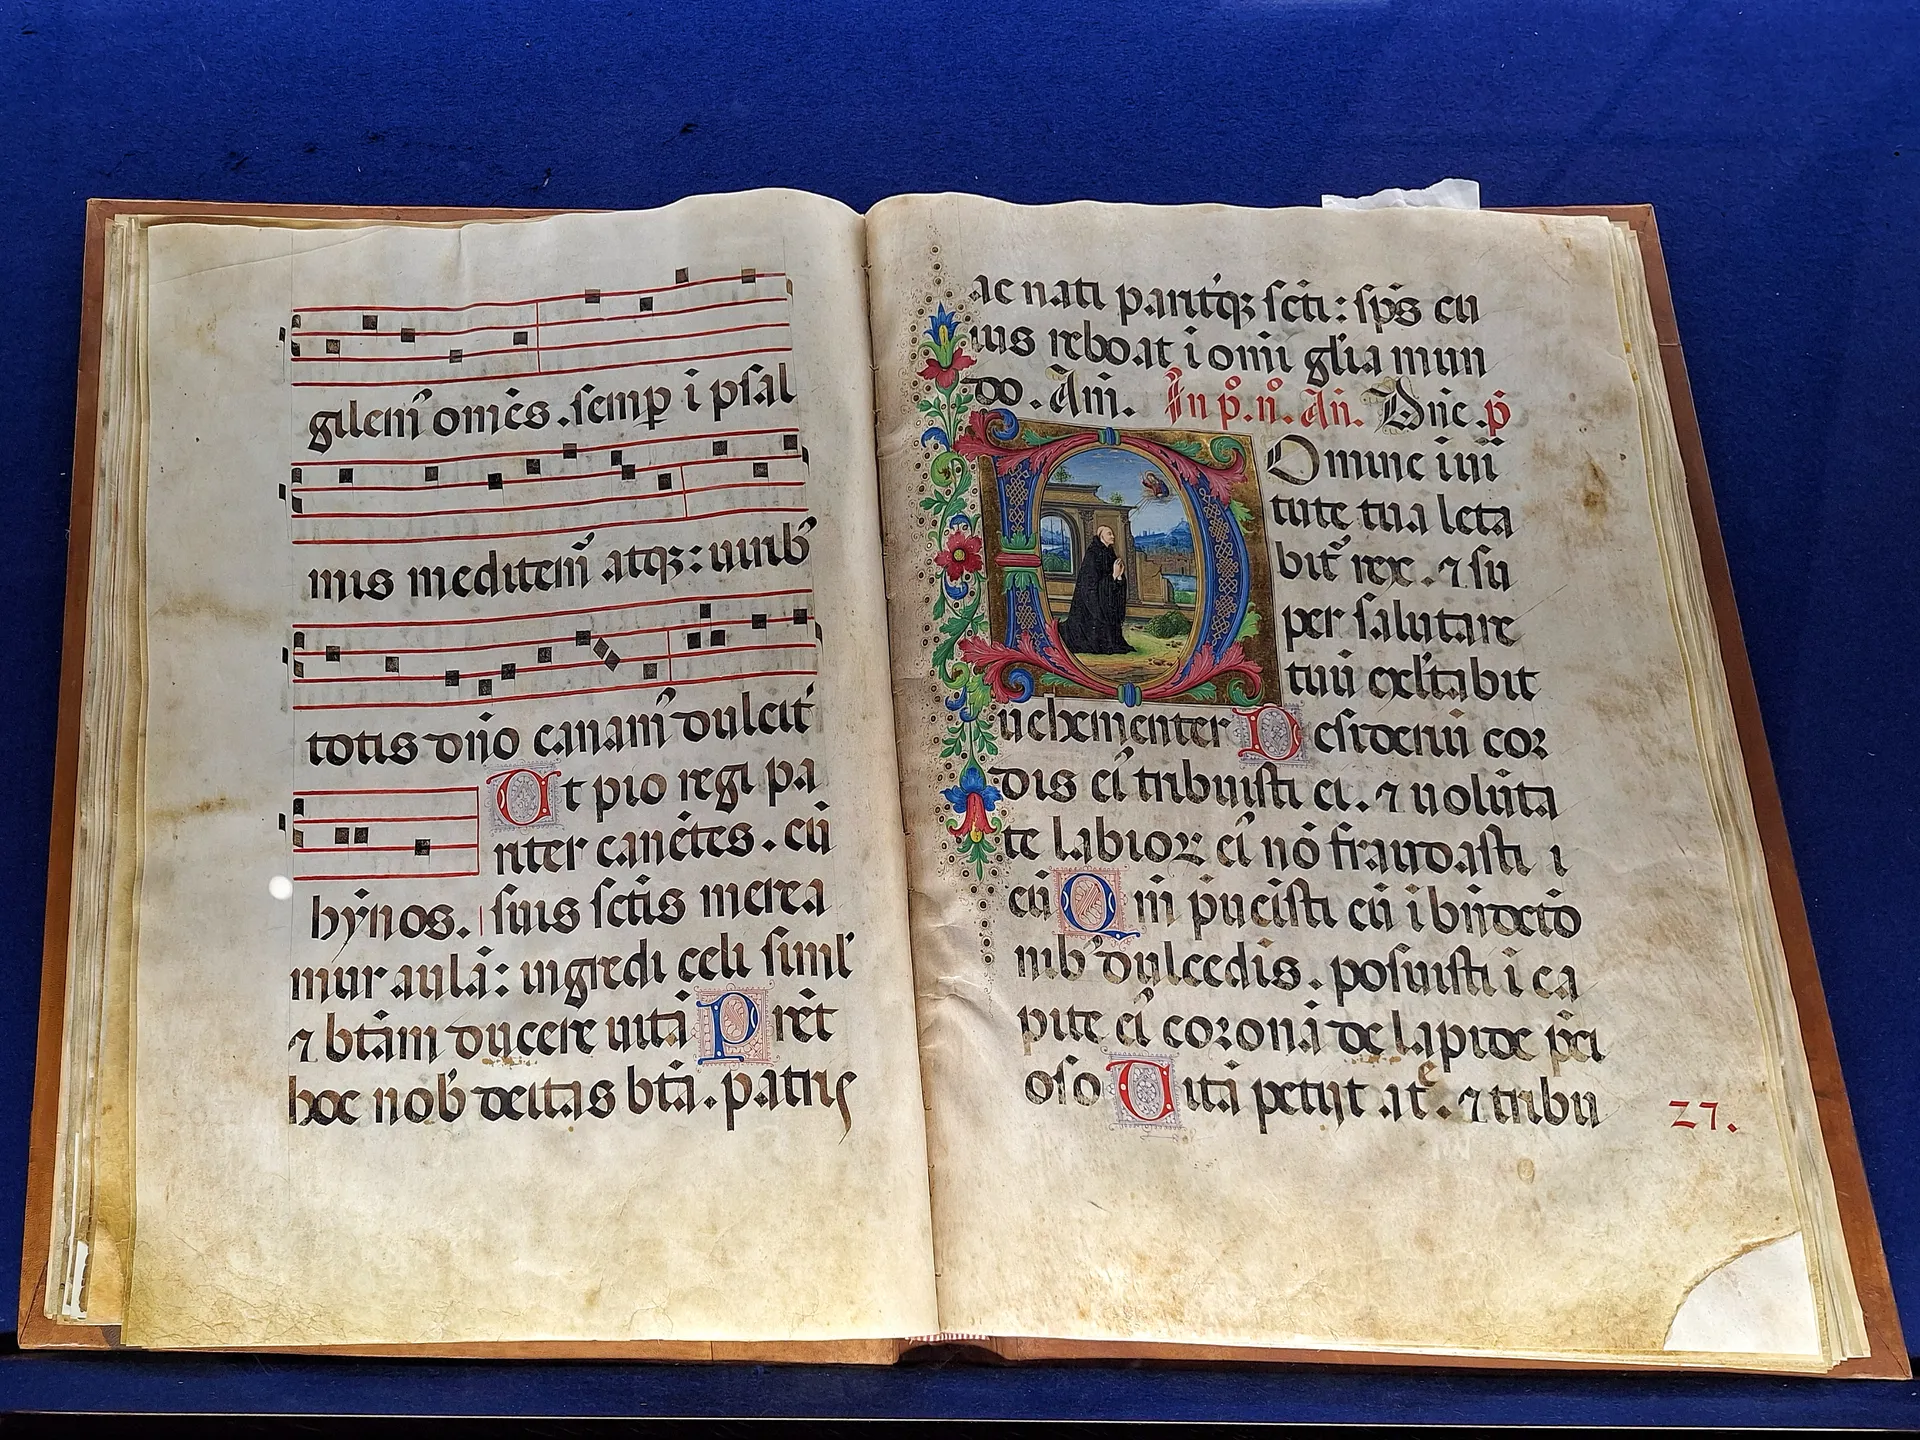 gilem̃ om̃es. semp i psal
mis meditem̃ atqꝫ: uirib̃
totis dño canam̃ dulcit̃
Ut pio regi pa
riter canẽtes. cũ
hỹnos. suis sctis merea
mur aulã: ingredi celi simĺ
⁊ btãm ducere uitã Prẽt
hoc nob̃ deitas btã. patris
ac nati paritqꝫ scti: sps̃ cu
ius reboat i om̃i gl̃ia mun
do. Am̃. In pº. nº. an̄. Dñe. p̃
Domine in uir
tute tua leta
bit̃ rex. ⁊ su
per salutare
tuũ exl̃tabit
uehementer Desideriũ cor
dis ei̓ tribuisti ei. ⁊ uolũta
te labioꝝ ei̓ nõ fraudasti
eũ Qm̃ p̃uẽisti eũ i bñdictõ
nib̃ dulcedis. posuisti i ca
pite ei̓ coronã de lapide p̃ci
oso Uitã petijt a te. ⁊ tribu
27.